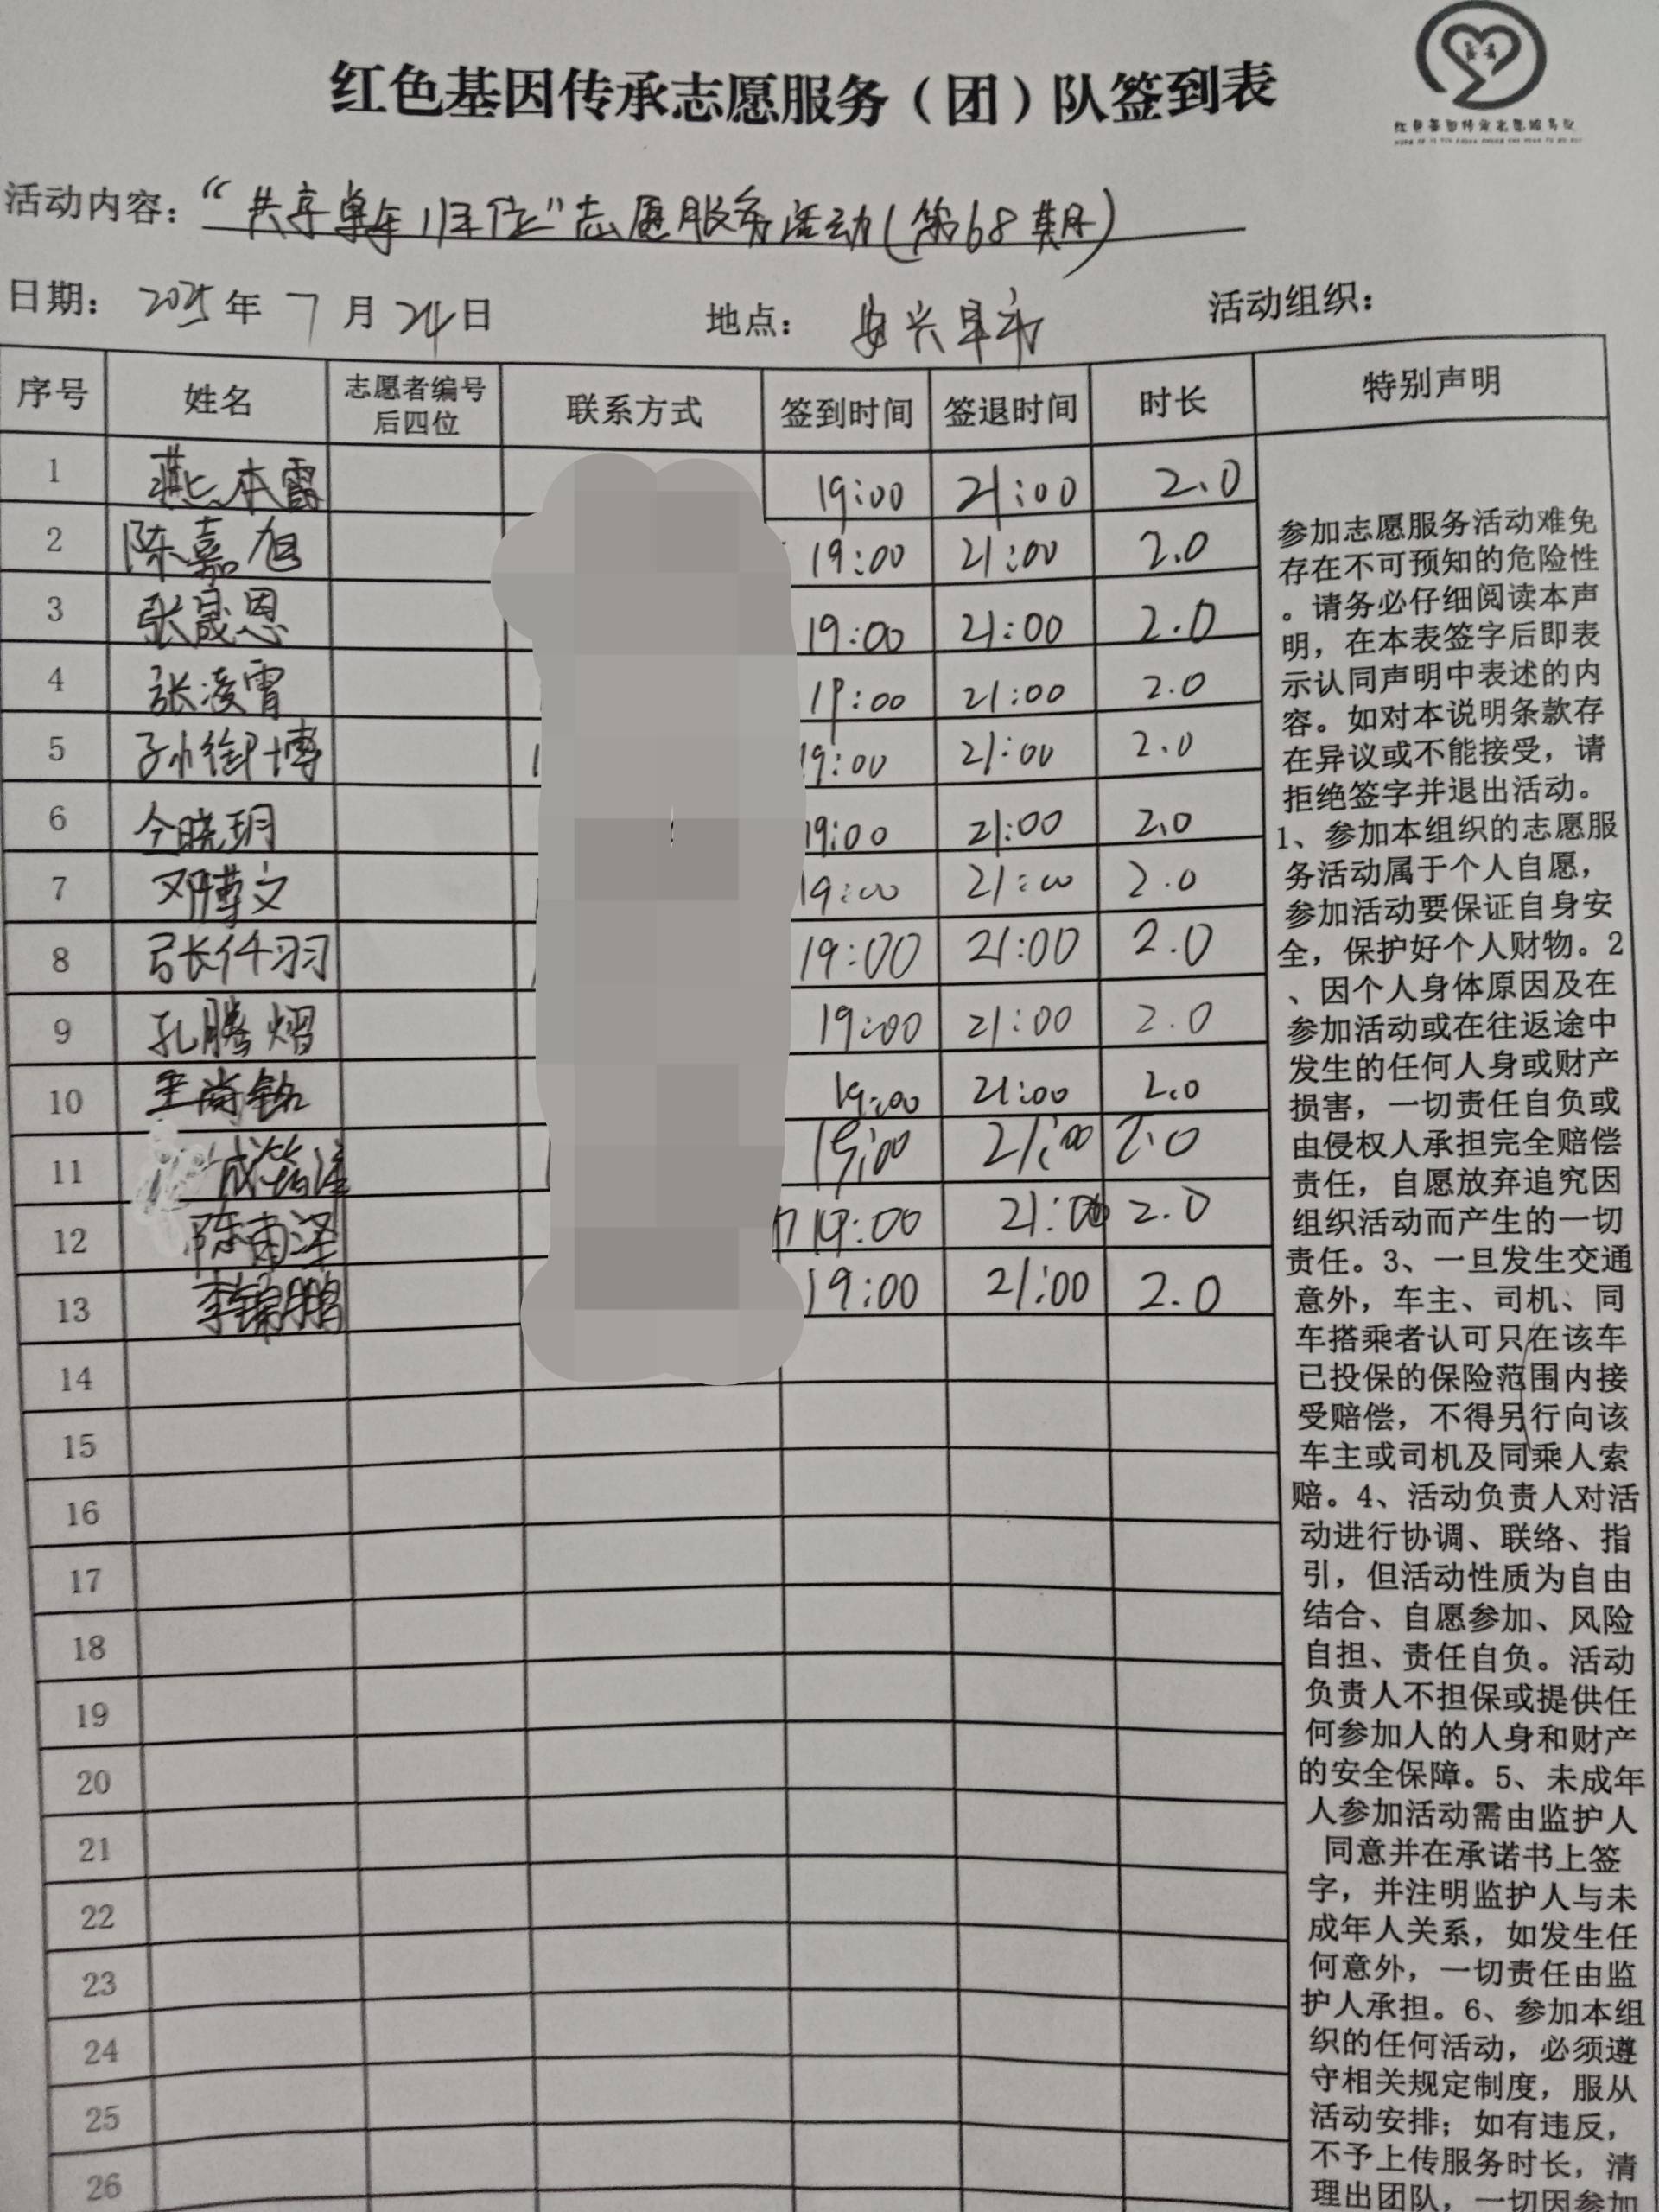 红色基因传承志愿服务（团）队签到表
红色基因传承志愿服务队
活动内容：“共享单车归位”志愿服务活动(第68期)
日期：2025年7月24日 地点：安兴早市 活动组织：
序号 姓名 志愿者编号后四位 联系方式 签到时间 签退时间 时长 特别声明
1 燕本霞 19:00 21:00 2.0
2 陈嘉旭 19:00 21:00 2.0
3 张晟恩 19:00 21:00 2.0
4 张凌霄 19:00 21:00 2.0
5 孙衙博 19:00 21:00 2.0
6 仝晓玥 19:00 21:00 2.0
7 邓博文 19:00 21:00 2.0
8 张仟羽 19:00 21:00 2.0
9 孔腾熠 19:00 21:00 2.0
10 王尚铭 19:00 21:00 2.0
11 19:00 21:00 2.0
12 陈雨泽 19:00 21:00 2.0
13 李锦鹏 19:00 21:00 2.0
14
15
16
17
18
19
20
21
22
23
24
25
26
参加志愿服务活动难免
存在不可预知的危险性
。请务必仔细阅读本声
明，在本表签字后即表
示认同声明中表述的内
容。如对本说明条款存
在异议或不能接受，请
拒绝签字并退出活动。
1、参加本组织的志愿服
务活动属于个人自愿，
参加活动要保证自身安
全，保护好个人财物。2
、因个人身体原因及在
参加活动或在往返途中
发生的任何人身或财产
损害，一切责任自负或
由侵权人承担完全赔偿
责任，自愿放弃追究因
组织活动而产生的一切
责任。3、一旦发生交通
意外，车主、司机、同
车搭乘者认可只在该车
已投保的保险范围内接
受赔偿，不得另行向该
车主或司机及同乘人索
赔。4、活动负责人对活
动进行协调、联络、指
引，但活动性质为自由
结合、自愿参加、风险
自担、责任自负。活动
负责人不担保或提供任
何参加人的人身和财产
的安全保障。5、未成年
人参加活动需由监护人
同意并在承诺书上签
字，并注明监护人与未
成年人关系，如发生任
何意外，一切责任由监
护人承担。6、参加本组
织的任何活动，必须遵
守相关规定制度，服从
活动安排；如有违反，
不予上传服务时长，清
理出团队，一切因参加